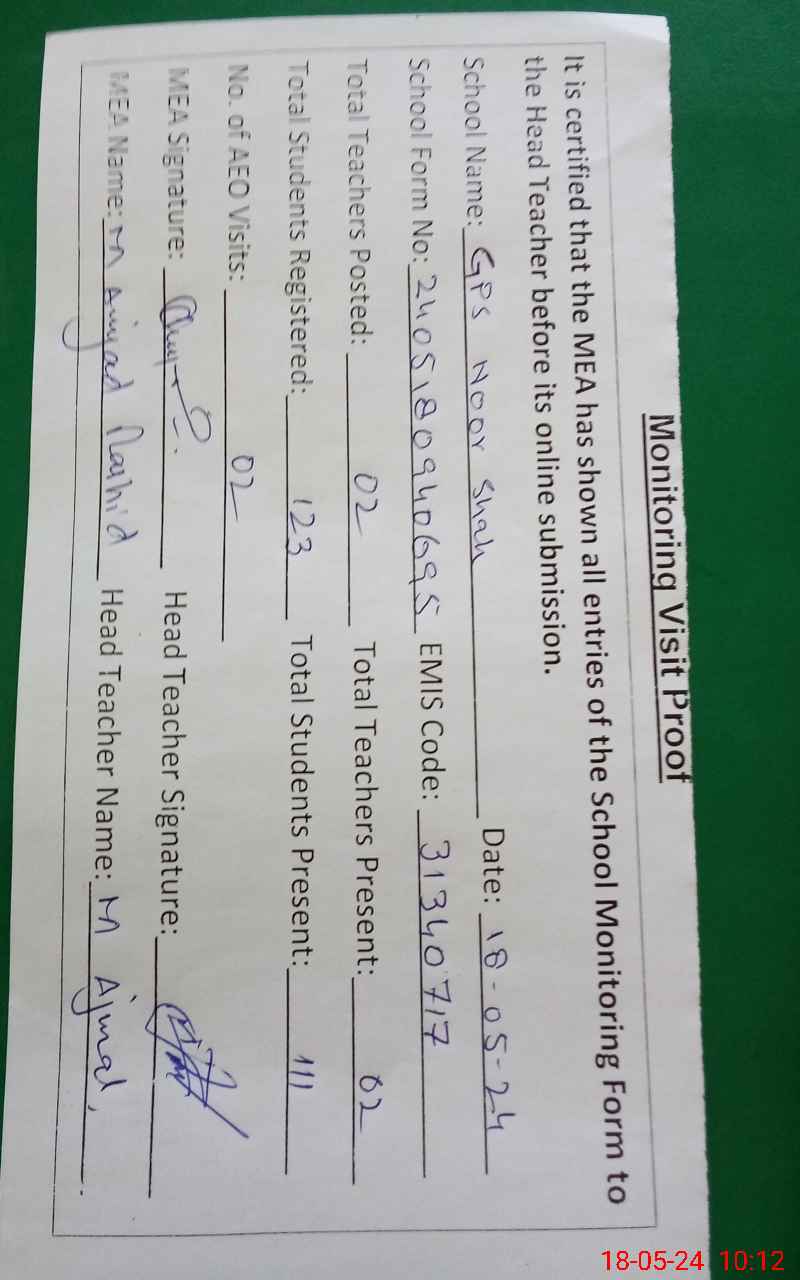 Monitoring Visit Proof
It is certified that the MEA has shown all entries of the School Monitoring Form to
the Head Teacher before its online submission.
School Name: GPS Noor Shah Date: 18-05-24
School Form No: 240518094069S EMIS Code: 31340717
Total Teachers Posted: 02 Total Teachers Present: 02
Total Students Registered: 123 Total Students Present: 111
No. of AEO Visits: 02
MEA Signature: Head Teacher Signature:
MEA Name: M Amjad Rashid Head Teacher Name: M Ajmal,
18-05-24 10:12